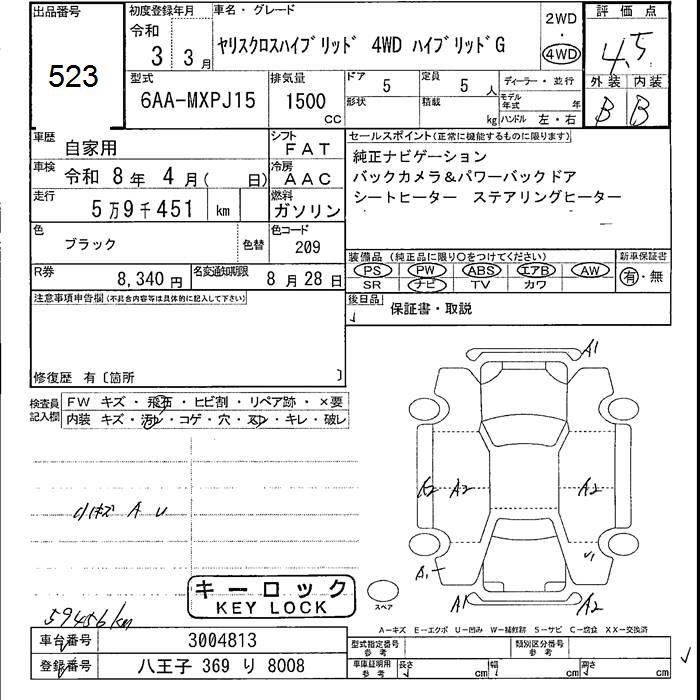 出品番号
523
初度登録年月
令和
3 3月
車名・グレード
ヤリスクロスハイブリッド 4WD ハイブリッドG
2WD
・
4WD
評価点
4.5
外装 内装
B B
型式
6AA-MXPJ15
排気量
1500
CC
ドア
5
定員
5 人
形状
積載
kg
ディーラー・並行
モデル年式 年
ハンドル 左・右
車歴
自家用
シフト
FAT
車検
令和 8年 4月( 日)
冷房
AAC
走行
5万9千451 km
燃料
ガソリン
色
ブラック
色替
色コード
209
R券
8,340 円
名変通知期限
8月28日
セールスポイント(正常に機能するものに限ります)
純正ナビゲーション
バックカメラ&パワーバックドア
シートヒーター ステアリングヒーター
装備品(純正品に限り○をつけてください)
新車保証書
PS PW ABS エアB AW
SR ナビ TV カワ
有・無
後日品
保証書・取説
注意事項申告欄(不具合内容等は具体的に記入して下さい)
修復歴 有〔箇所 〕
検査員
記入欄
FW キズ・飛石・ヒビ割・リペア跡・×要
内装 キズ・汚レ・コゲ・穴・スレ・キレ・破レ
小キズ A U
59456km
キーロック
KEY LOCK
A1
A2 A2 A2
A1 U1
A1 A2
スペア
A-キズ E-エクボ U-凹み W-補修跡 S-サビ C-腐食 XX-交換済
車台番号
3004813
登録番号
八王子 369 り 8008
型式指定番号
参考
類別区分番号
参考
車庫証明用
参考
長さ cm 幅 cm 高さ cm